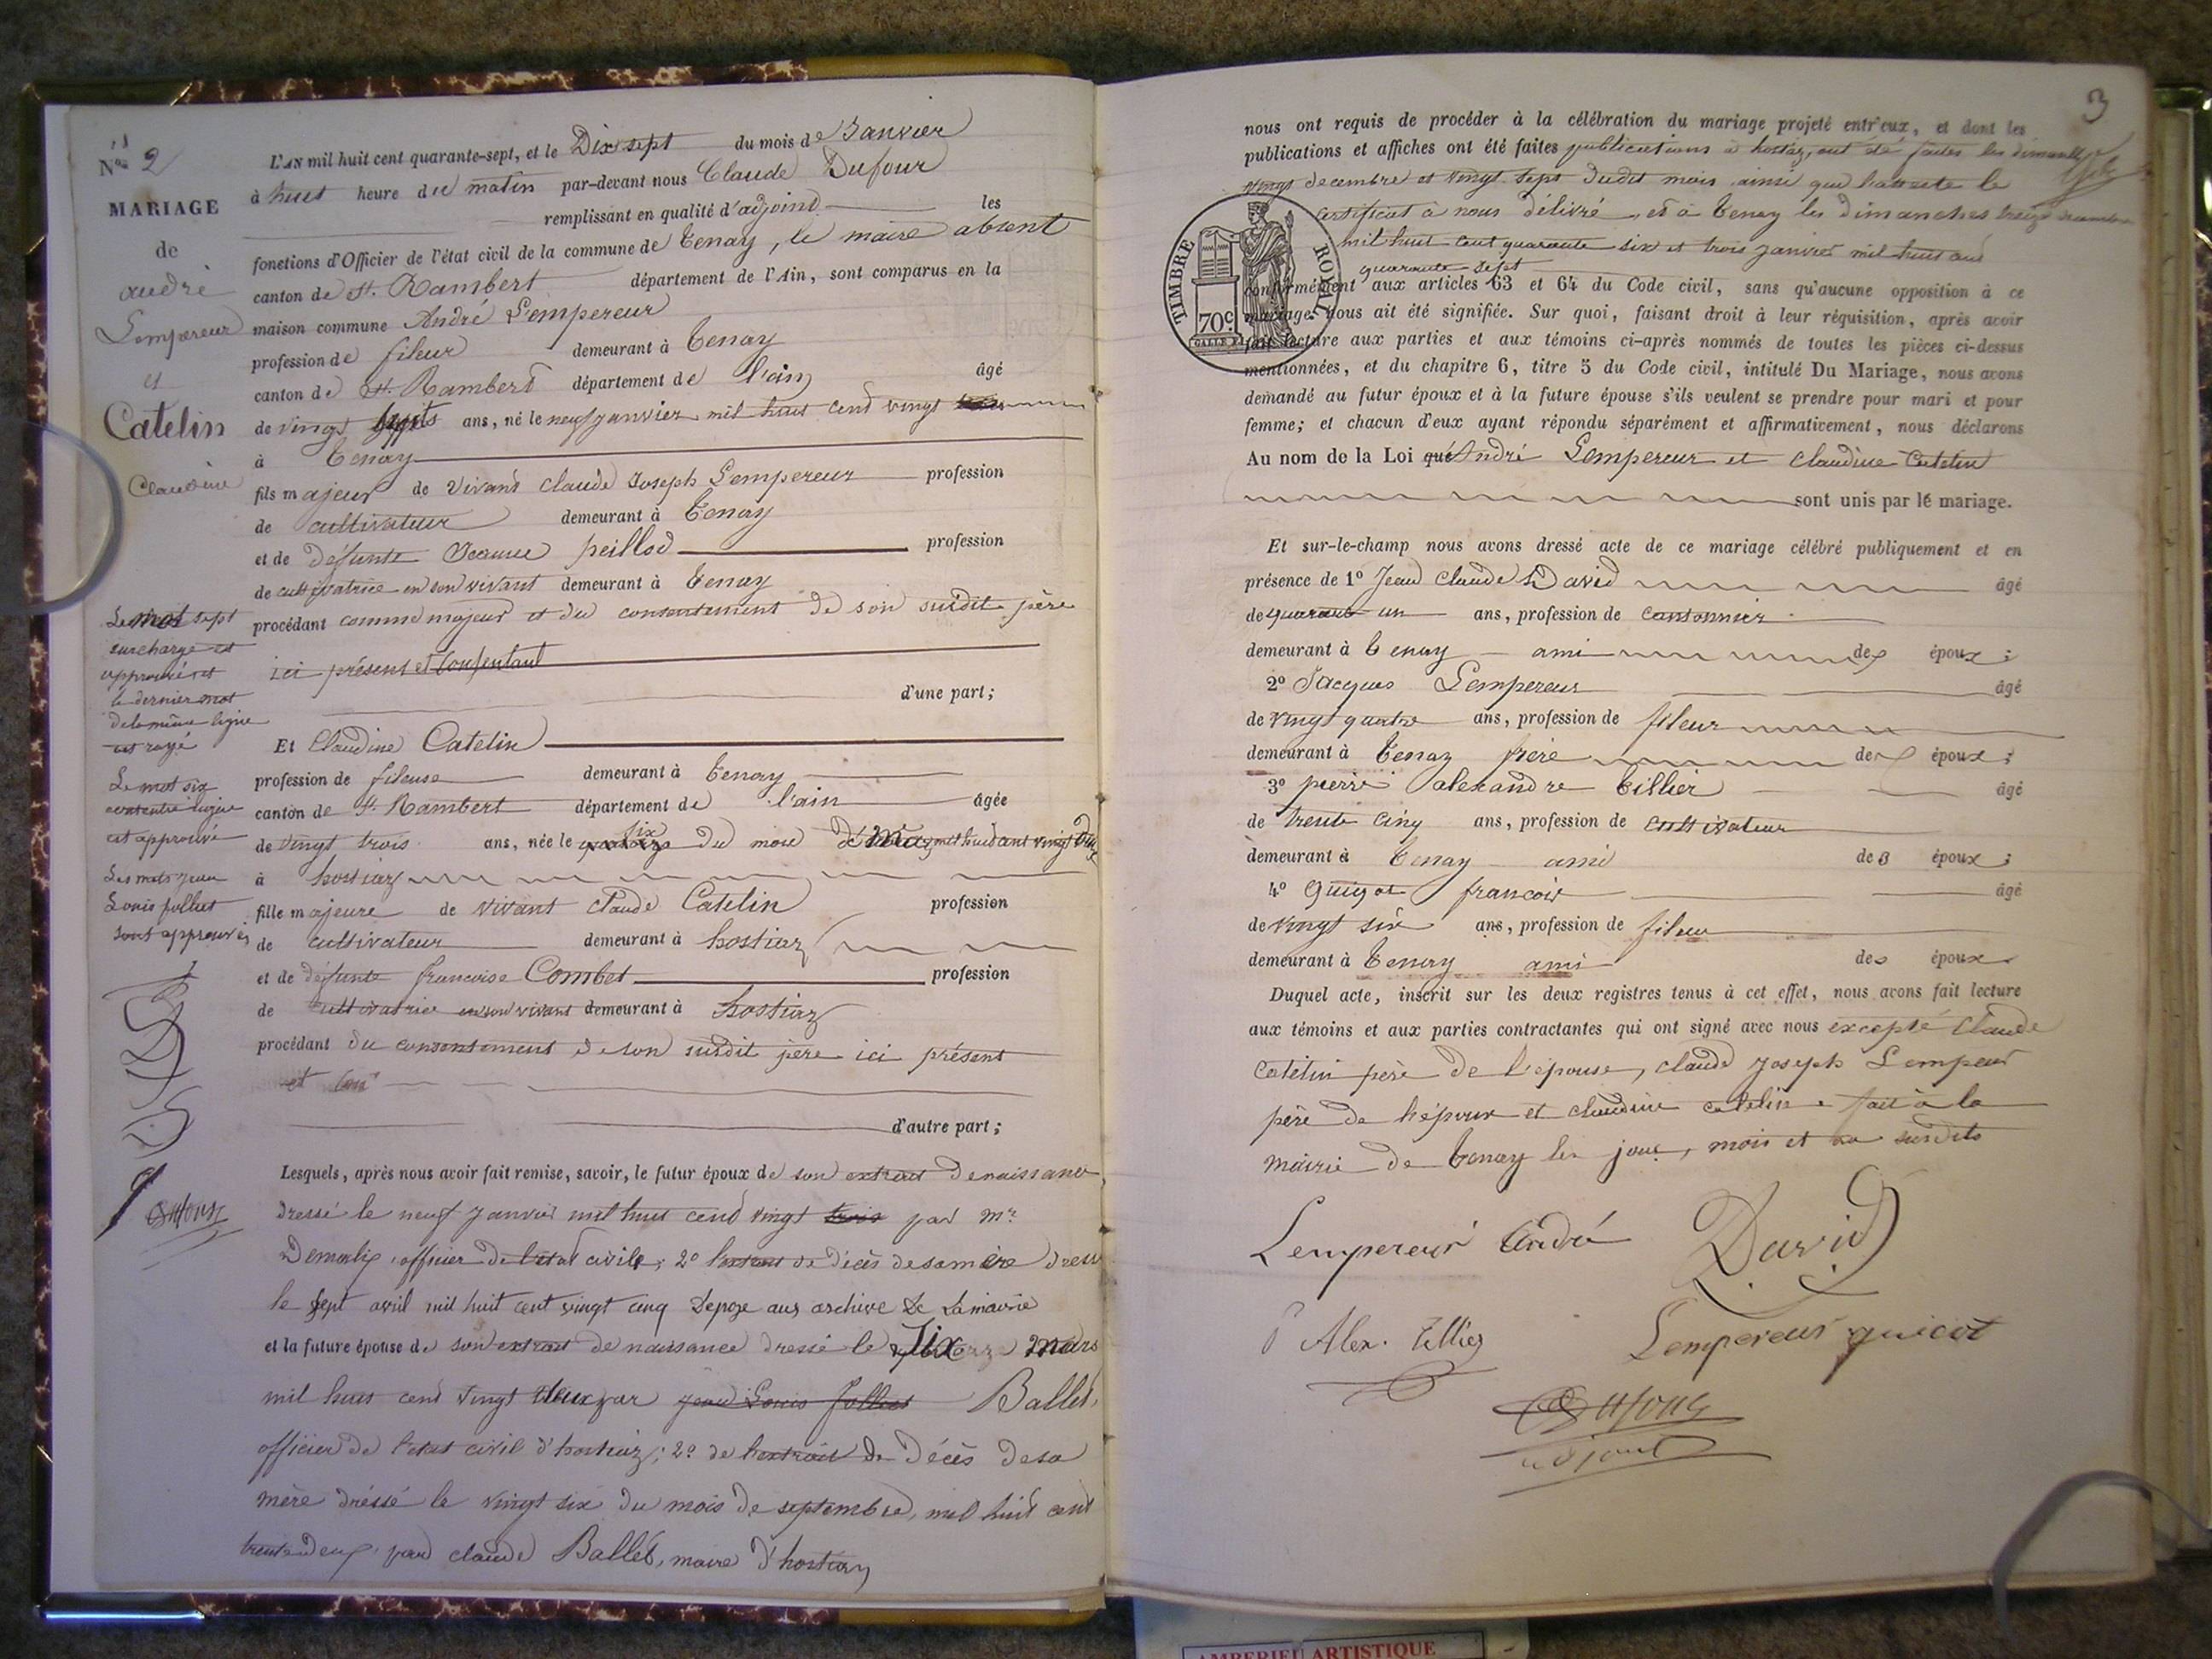 Nº 2
MARIAGE
de
andré
Lempereur
et
Catelin
Claudine
L'AN mil huit cent quarante-sept, et le Dix sept du mois de Janvier
à huit heure du matin par-devant nous Claude Dufour
remplissant en qualité d'adjoind les
fonctions d'Officier de l'état civil de la commune de Tenay, le maire absent
canton de St. Rambert département de l'Ain, sont comparus en la
maison commune André Lempereur
profession de fileur demeurant à Tenay
canton de St. Rambert département de l'ain âgé
de vingt sept ans, né le neuf janvier mil huit cend vingt
à Tenay
fils majeur de vivant claude Joseph Lempereur profession
de cultivateur demeurant à Tenay
et de défunte Jeanne peillod profession
de cultivatrice en son vivant demeurant à Tenay
procédant comme majeur et du consentement de son susdit père
ici présent et consentant
d'une part;
Le mot sept
surchargé est
approuvé et
le dernier mot
de la même ligne
est rayé
Et Claudine Catelin
profession de fileuse demeurant à Tenay
canton de St. Rambert département de l'ain âgée
de vingt trois ans, née le six du mois de mars mil huit cent vingt
à hostiaz
fille majeure de vivant claude Catelin profession
de cultivateur demeurant à hostiaz
et de défunte francoise Combet profession
de cultivatrice en son vivant demeurant à hostiaz
procédant du consentement de son susdit père ici présent
et
d'autre part;
Le mot six
est approuvé
Les mots jean
Louis jolliet
sont approuvés
Dufour
Lesquels, après nous avoir fait remise, savoir, le futur époux de son extrait de naissance
dressé le neuf janvier mil huit cend vingt trois par mr.
officier de l'état civile; 2º lextrait de décès de sa mère dressé
le sept avril mil huit cent vingt cinq depoze aus archive de la mairie
et la future épouse de son extrait de naissance dressé le six mars
mil huit cend vingt deux par jean Louis jolliet Ballet,
officier de l'état civil d'hostiaz; 2º de lextrait de décès de sa
mère dréssé le vingt six du mois de septembre, mil huit cent
trente deux par claude Ballet, maire d'hostiaz
3
nous ont requis de procéder à la célébration du mariage projeté entr'eux, et dont les
publications et affiches ont été faites publications à hostiaz, ont été faites les dimanches
vingt decembre et vingt sept dudit mois ainsi que l'atteste le
certificat à nous délivré, et à Tenay les dimanches
mil huit cent quarante six et trois janvier mil huit cend
quarante sept
TIMBRE ROYAL
70c.
conformément aux articles 63 et 64 du Code civil, sans qu'aucune opposition à ce
mariage nous ait été signifiée. Sur quoi, faisant droit à leur réquisition, après avoir
fait lecture aux parties et aux témoins ci-après nommés de toutes les pièces ci-dessus
mentionnées, et du chapitre 6, titre 5 du Code civil, intitulé Du Mariage, nous avons
demandé au futur époux et à la future épouse s'ils veulent se prendre pour mari et pour
femme; et chacun d'eux ayant répondu séparément et affirmativement, nous déclarons
Au nom de la Loi que André Lempereur et claudine Catelin
sont unis par le mariage.
Et sur-le-champ nous avons dressé acte de ce mariage célébré publiquement et en
présence de 1º Jean claude David âgé
de quarante un ans, profession de cantonnier
demeurant à Tenay ami des époux;
2º Jacques Lempereur âgé
de vingt quatre ans, profession de fileur
demeurant à Tenay frère de époux;
3º pierre alexandre tillier âgé
de trente cinq ans, profession de cultivateur
demeurant à Tenay ami des époux;
4º Guigot francois âgé
de vingt six ans, profession de fileur
demeurant à Tenay ami des époux
Duquel acte, inscrit sur les deux registres tenus à cet effet, nous avons fait lecture
aux témoins et aux parties contractantes qui ont signé avec nous excepté claude
catelin père de l'épouse, claude Joseph Lempereur
père de l'époux et claudine catelin fait à la
mairie de Tenay les jour, mois et an susdits
Lempereur André David
P Alex. Tillier Lempereur guicot
Dufour
adjoint
AMBERIEU ARTISTIQUE